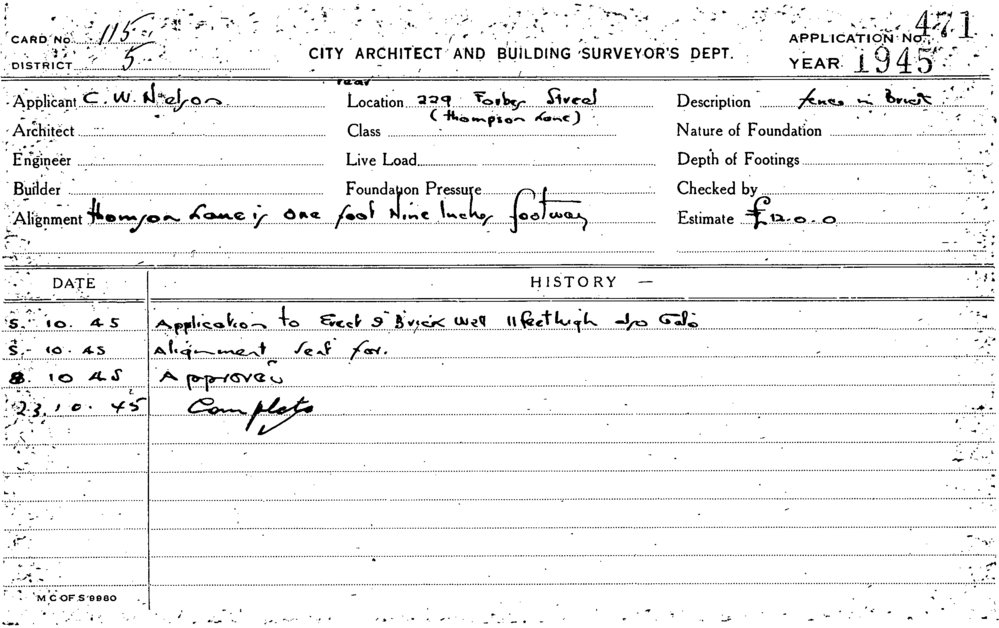 CARD No. 115
DISTRICT 5
CITY ARCHITECT AND BUILDING SURVEYOR'S DEPT.
APPLICATION No. 471
YEAR 1945
rear
Applicant C. W. Nelson
Location 229 Forbes Street
(Thompson Lane)
Description fence in Brick
Architect
Class
Nature of Foundation
Engineer
Live Load
Depth of Footings
Builder
Foundation Pressure
Checked by
Alignment Thomson Lane is one foot Nine Inches footway
Estimate £12.0.0
DATE
HISTORY
5. 10. 45 Application to Erect 9" Brick Wall 11 feet high
5. 10. 45 Alignment sent for.
8. 10 45 Approved
23. 10. 45 Complete
M C OF S 9960